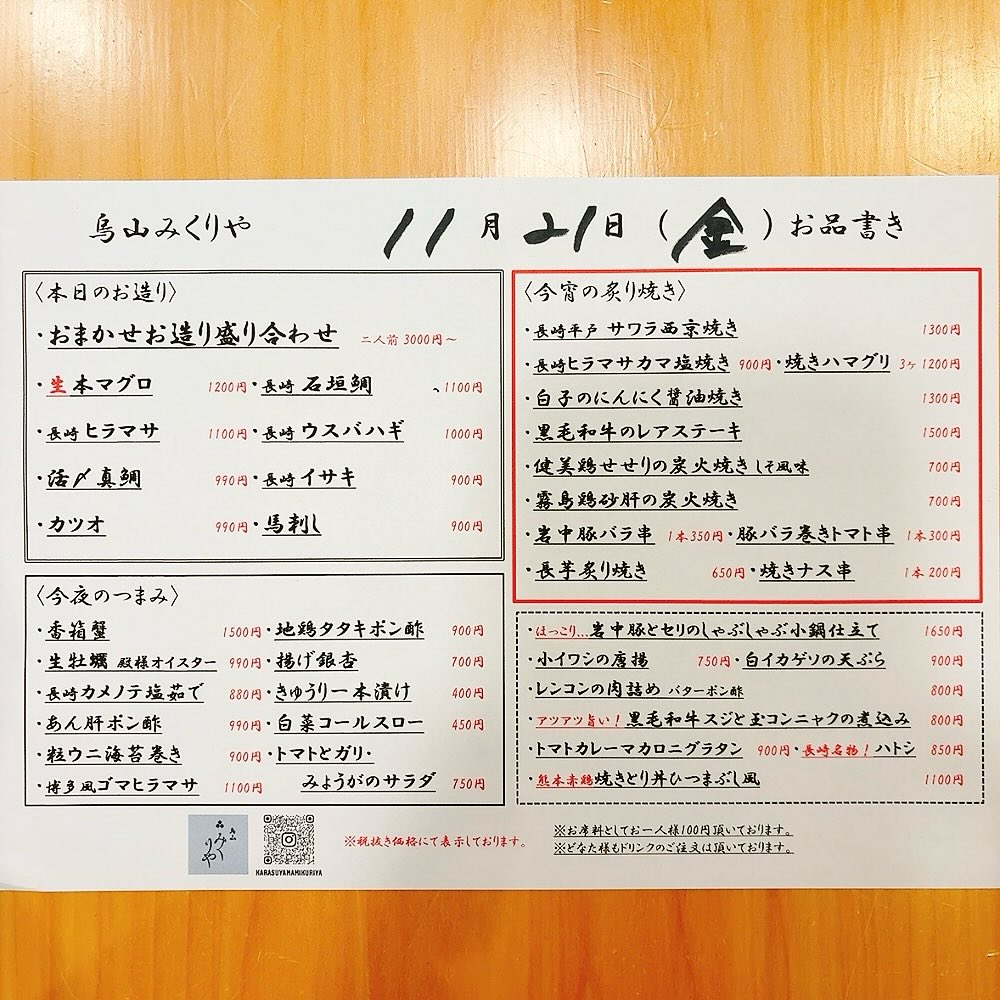 烏山みくりや 11月21日(金)お品書き
〈本日のお造り〉
・おまかせお造り盛り合わせ 二人前 3000円~
・生本マグロ 1200円・長崎 石垣鯛 、1100円
・長崎 ヒラマサ 1100円・長崎 ウスバハギ 1000円
・活〆真鯛 990円・長崎 イサキ 900円
・カツオ 990円・馬刺し 900円
〈今夜のつまみ〉
・香箱蟹 1500円・地鶏タタキポン酢 900円
・生牡蠣 殿様オイスター 990円・揚げ銀杏 700円
・長崎カメノテ塩茹で 880円・きゅうり一本漬け 400円
・あん肝ポン酢 990円・白菜コールスロー 450円
・粒ウニ海苔巻き 900円・トマトとガリ・
・博多風ゴマヒラマサ 1100円 みょうがのサラダ 750円
〈今宵の炙り焼き〉
・長崎平戸 サワラ西京焼き 1300円
・長崎ヒラマサカマ塩焼き 900円・焼きハマグリ 3ヶ 1200円
・白子のにんにく醤油焼き 1300円
・黒毛和牛のレアステーキ 1500円
・健美鶏せせりの炭火焼き しそ風味 700円
・霧島鶏砂肝の炭火焼き 700円
・岩中豚バラ串 1本350円・豚バラ巻きトマト串 1本300円
・長芋炙り焼き 650円・焼きナス串 1本200円
・ほっこり...岩中豚とセリのしゃぶしゃぶ小鍋仕立て 1650円
・小イワシの唐揚 750円・白イカゲソの天ぷら 900円
・レンコンの肉詰め バターポン酢 800円
・アツアツ旨い!黒毛和牛スジと玉コンニャクの煮込み 800円
・トマトカレーマカロニグラタン 900円・長崎名物!ハトシ 850円
・熊本赤鶏焼きとり丼ひつまぶし風 1100円
烏山
みくりや
KARASUYAMAMIKURIYA
※税抜き価格にて表示しております。
※お席料としてお一人様100円頂いております。
※どなた様もドリンクのご注文は頂いております。